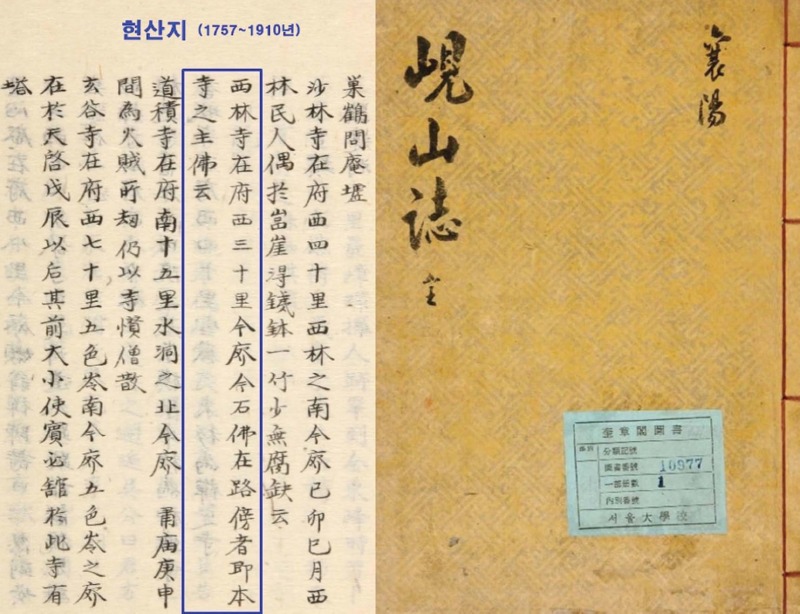 현산지 (1757~1910년)
巢鶴問庵墟
沙林寺在府西四十里西林之南今廢己卯巳月西
林民人偶於岩崖淂錢鉢一竹少無腐缺云
西林寺在府西三十里今廢今石佛在路傍者即本
寺之主佛云
道積寺在府南十五里水洞之北今廢 庚申
間為火賊所刼仍以寺憤僧散
玄谷寺在府西七十里五色岺南今廢五色岺之廢
在於天啓戊辰以后其前大小使賓必舘於此寺有
塔
襄陽
峴山誌
奎章閣圖書
分類記號
圖書番號 10977
一部冊數 1
內別番號
서울大學校